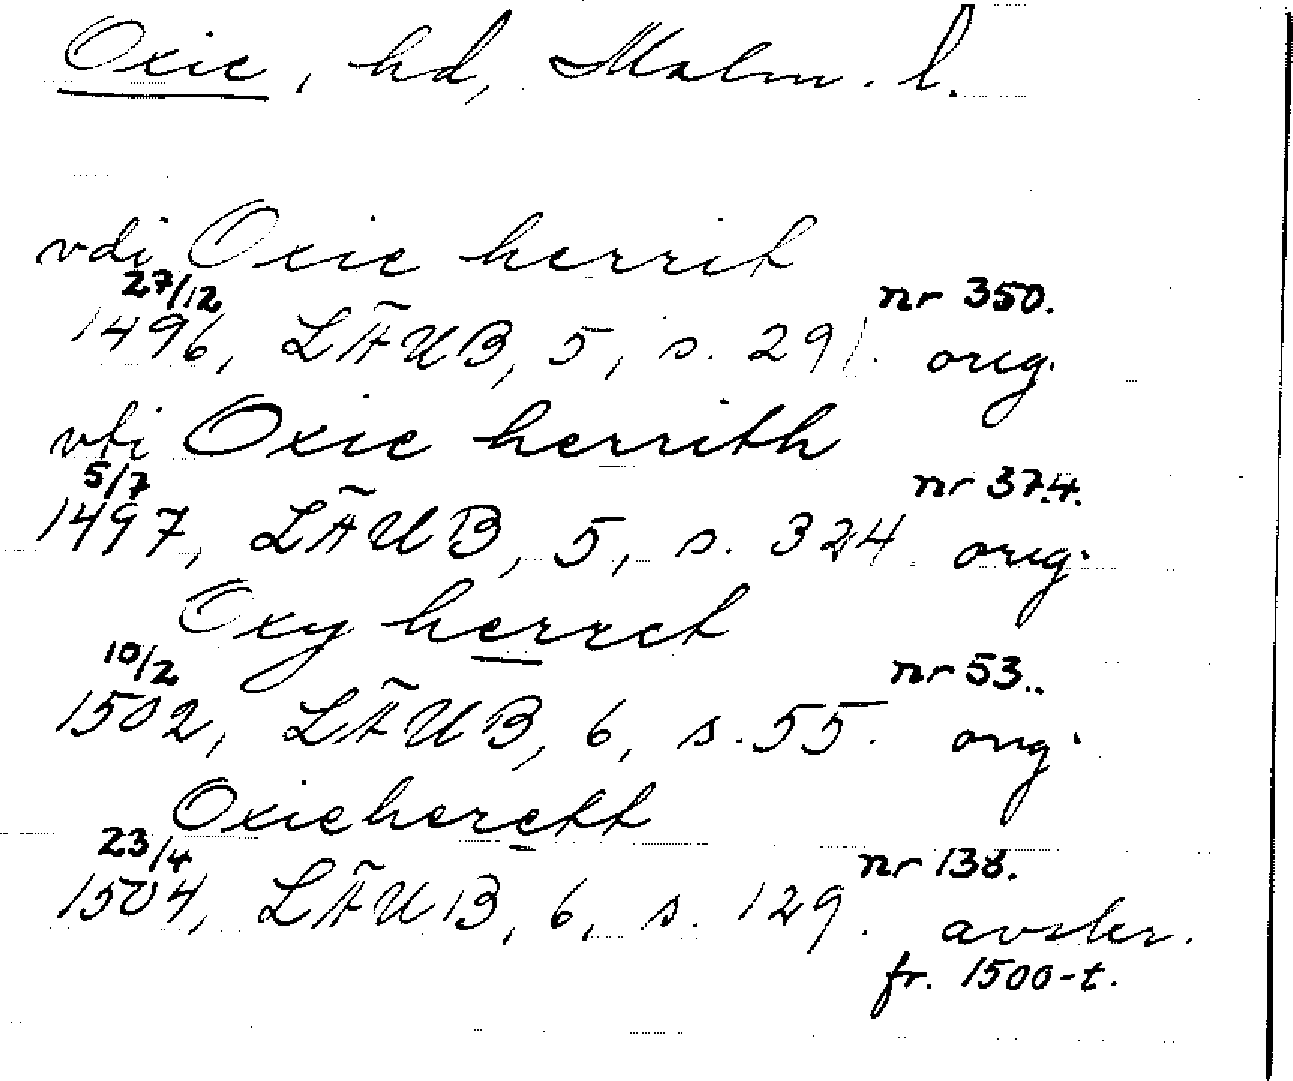 Oxie, hd, Malm. l.
vdi Oxie herrit
27/12 nr 350.
1496, LÄUB, 5, s. 291. orig.
vti Oxie herrith
5/7 nr 374.
1497, LÄUB, 5, s. 324. orig.
Oxy herret
10/2 nr 53.
1502, LÄUB, 6, s. 55. orig.
Oxieherett
23/4 nr 138.
1504, LÄUB, 6, s. 129. avskr.
fr. 1500-t.